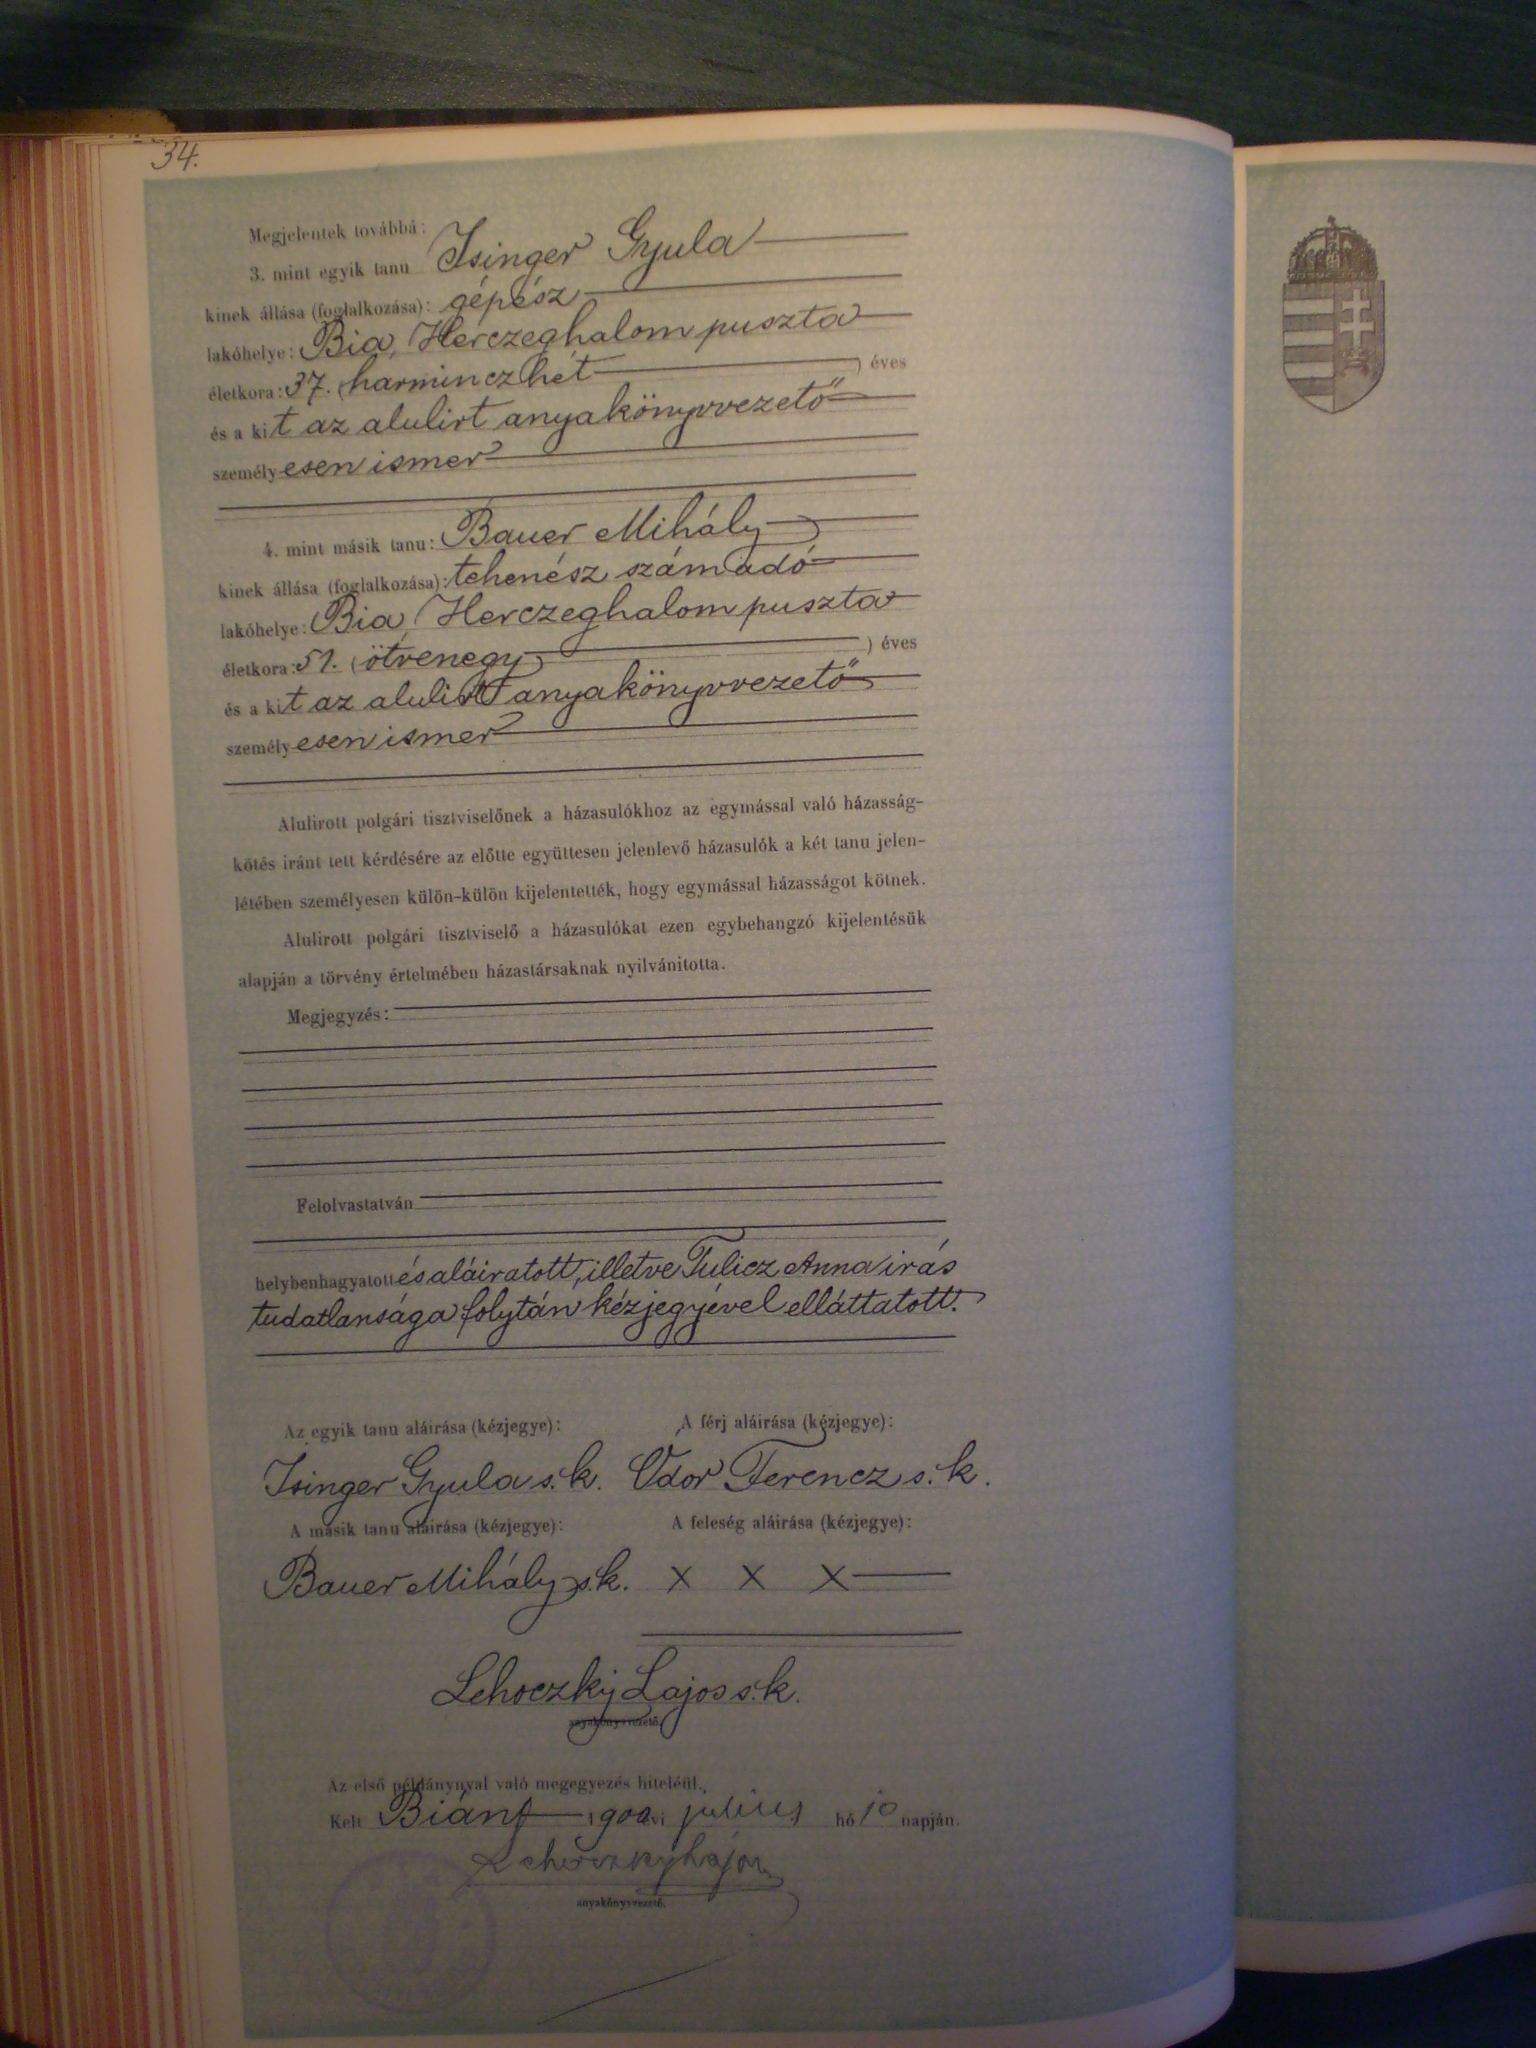 34.
Megjelentek továbbá:
3. mint egyik tanu Isinger Gyula
kinek állása (foglalkozása): gépész
lakóhelye: Bia, Herczeghalom puszta
életkora: 37. (harminczhét) éves
és a kit az alulirt anyakönyvvezető
személyesen ismer
4. mint másik tanu: Bauer Mihály
kinek állása (foglalkozása): tehenész számadó
lakóhelye: Bia, Herczeghalom puszta
életkora: 51. (ötvenegy) éves
és a kit az alulirt anyakönyvvezető
személyesen ismer
Alulirott polgári tisztviselőnek a házasulókhoz az egymással való házasság-
kötés iránt tett kérdésére az előtte együttesen jelenlevő házasulók a két tanu jelen-
létében személyesen külön-külön kijelentették, hogy egymással házasságot kötnek.
Alulirott polgári tisztviselő a házasulókat ezen egybehangzó kijelentésük
alapján a törvény értelmében házastársaknak nyilvánitotta.
Megjegyzés:
Felolvastatván
helybenhagyatott és aláiratott, illetve Tulicz Anna irás
tudatlansága folytán kézjegyével elláttatott.
Az egyik tanu aláirása (kézjegye): A férj aláirása (kézjegye):
Isinger Gyula s.k. Udor Ferencz s.k.
A másik tanu aláirása (kézjegye): A feleség aláirása (kézjegye):
Bauer Mihály s.k. x x x
Lehoczky Lajos s.k.
anyakönyvvezető.
Az első példánynyal való megegyezés hiteléül.
Kelt Bián, 1900 évi julius hó 10 napján.
Lehoczky Lajos
anyakönyvvezető.